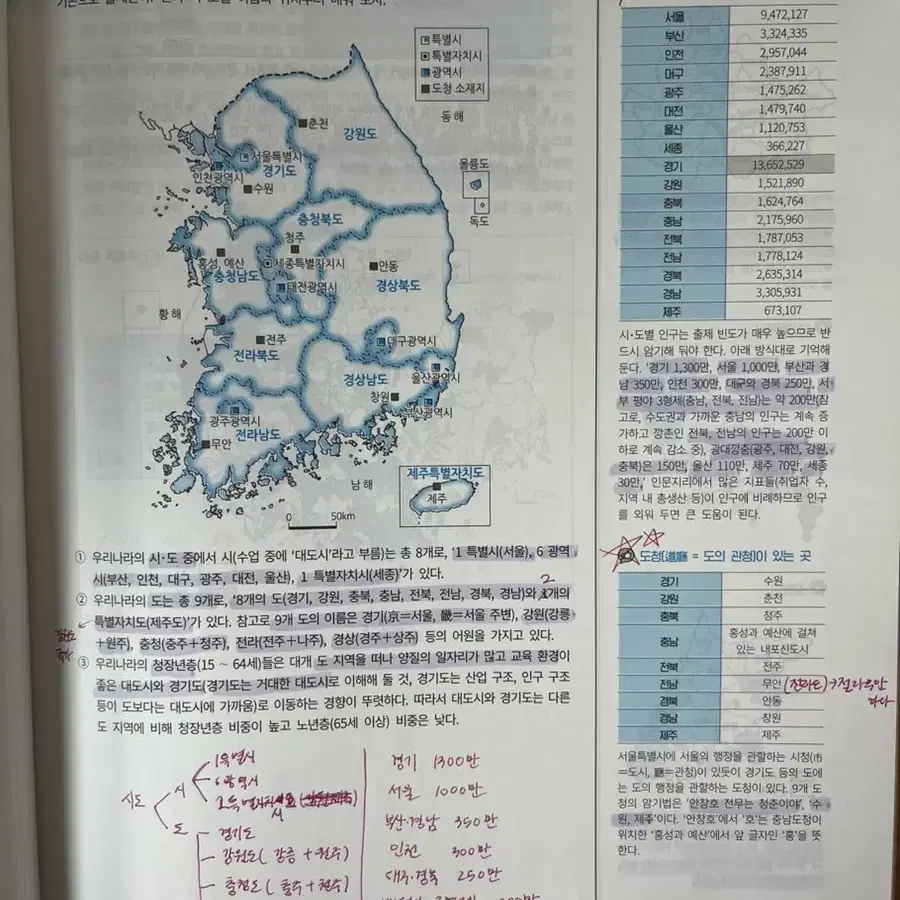 특별시
특별자치시
광역시
도청 소재지
동 해
춘천
강원도
울릉도
독도
서울특별시
인천광역시
경기도
수원
충청북도
청주
홍성, 예산
세종특별자치시
충청남도
대전광역시
안동
경상북도
황 해
전주
전라북도
대구광역시
울산광역시
경상남도
창원
부산광역시
광주광역시
전라남도
무안
남 해
제주특별자치도
제주
0 50km
① 우리나라의 시·도 중에서 시(수업 중에 '대도시'라고 부름)는 총 8개로, '1 특별시(서울), 6 광역
시(부산, 인천, 대구, 광주, 대전, 울산), 1 특별자치시(세종)'가 있다.
2
② 우리나라의 도는 총 9개로, '8개의 도(경기, 강원, 충북, 충남, 전북, 전남, 경북, 경남)와 1개의
특별자치도(제주도)'가 있다. 참고로 9개 도의 이름은 경기(京=서울, 畿=서울 주변), 강원(강릉
+원주), 충청(충주+청주), 전라(전주+나주), 경상(경주+상주) 등의 어원을 가지고 있다.
③ 우리나라의 청장년층(15 ~ 64세)들은 대개 도 지역을 떠나 양질의 일자리가 많고 교육 환경이
좋은 대도시와 경기도(경기도는 거대한 대도시로 이해해 둘 것, 경기도는 산업 구조, 인구 구조
등이 도보다는 대도시에 가까움)로 이동하는 경향이 뚜렷하다. 따라서 대도시와 경기도는 다른
도 지역에 비해 청장년층 비중이 높고 노년층(65세 이상) 비중은 낮다.
시도
시
1특별시
6광역시
1특별자치시
도
경기도
강원도 ( 강릉 + 원주 )
충청도 ( 충주 + 청주 )
경기 1300만
서울 1000만
부산·경남 350만
인천 300만
대구·경북 250만
서울 9,472,127
부산 3,324,335
인천 2,957,044
대구 2,387,911
광주 1,475,262
대전 1,479,740
울산 1,120,753
세종 366,227
경기 13,652,529
강원 1,521,890
충북 1,624,764
충남 2,175,960
전북 1,787,053
전남 1,778,124
경북 2,635,314
경남 3,305,931
제주 673,107
시·도별 인구는 출제 빈도가 매우 높으므로 반
드시 암기해 둬야 한다. 아래 방식대로 기억해
둔다. '경기 1,300만, 서울 1,000만, 부산과 경
남 350만, 인천 300만, 대구와 경북 250만, 서
부 평야 3형제(충남, 전북, 전남)는 약 200만(참
고로, 수도권과 가까운 충남의 인구는 계속 증
가하고 깡촌인 전북, 전남의 인구는 200만 이
하로 계속 감소 중), 광대강충(광주, 대전, 강원,
충북)은 150만, 울산 110만, 제주 70만, 세종
30만,' 인문지리에서 많은 지표들(취업자 수,
지역 내 총생산 등)이 인구에 비례하므로 인구
를 외워 두면 큰 도움이 된다.
도청(道廳 = 도의 관청)이 있는 곳
경기 수원
강원 춘천
충북 청주
충남 홍성과 예산에 걸쳐
있는 내포신도시
전북 전주
전남 무안
경북 안동
경남 창원
제주 제주
서울특별시에 서울의 행정을 관할하는 시청(市
=도시, 廳=관청)이 있듯이 경기도 등의 도에
는 도의 행정을 관할하는 도청이 있다. 9개 도
청의 암기법은 '안창호 전무는 청춘이야', '수
원, 제주'이다. '안창호'에서 '호'는 충남도청이
위치한 '홍성과 예산'에서 앞 글자인 '홍'을 뜻
한다.